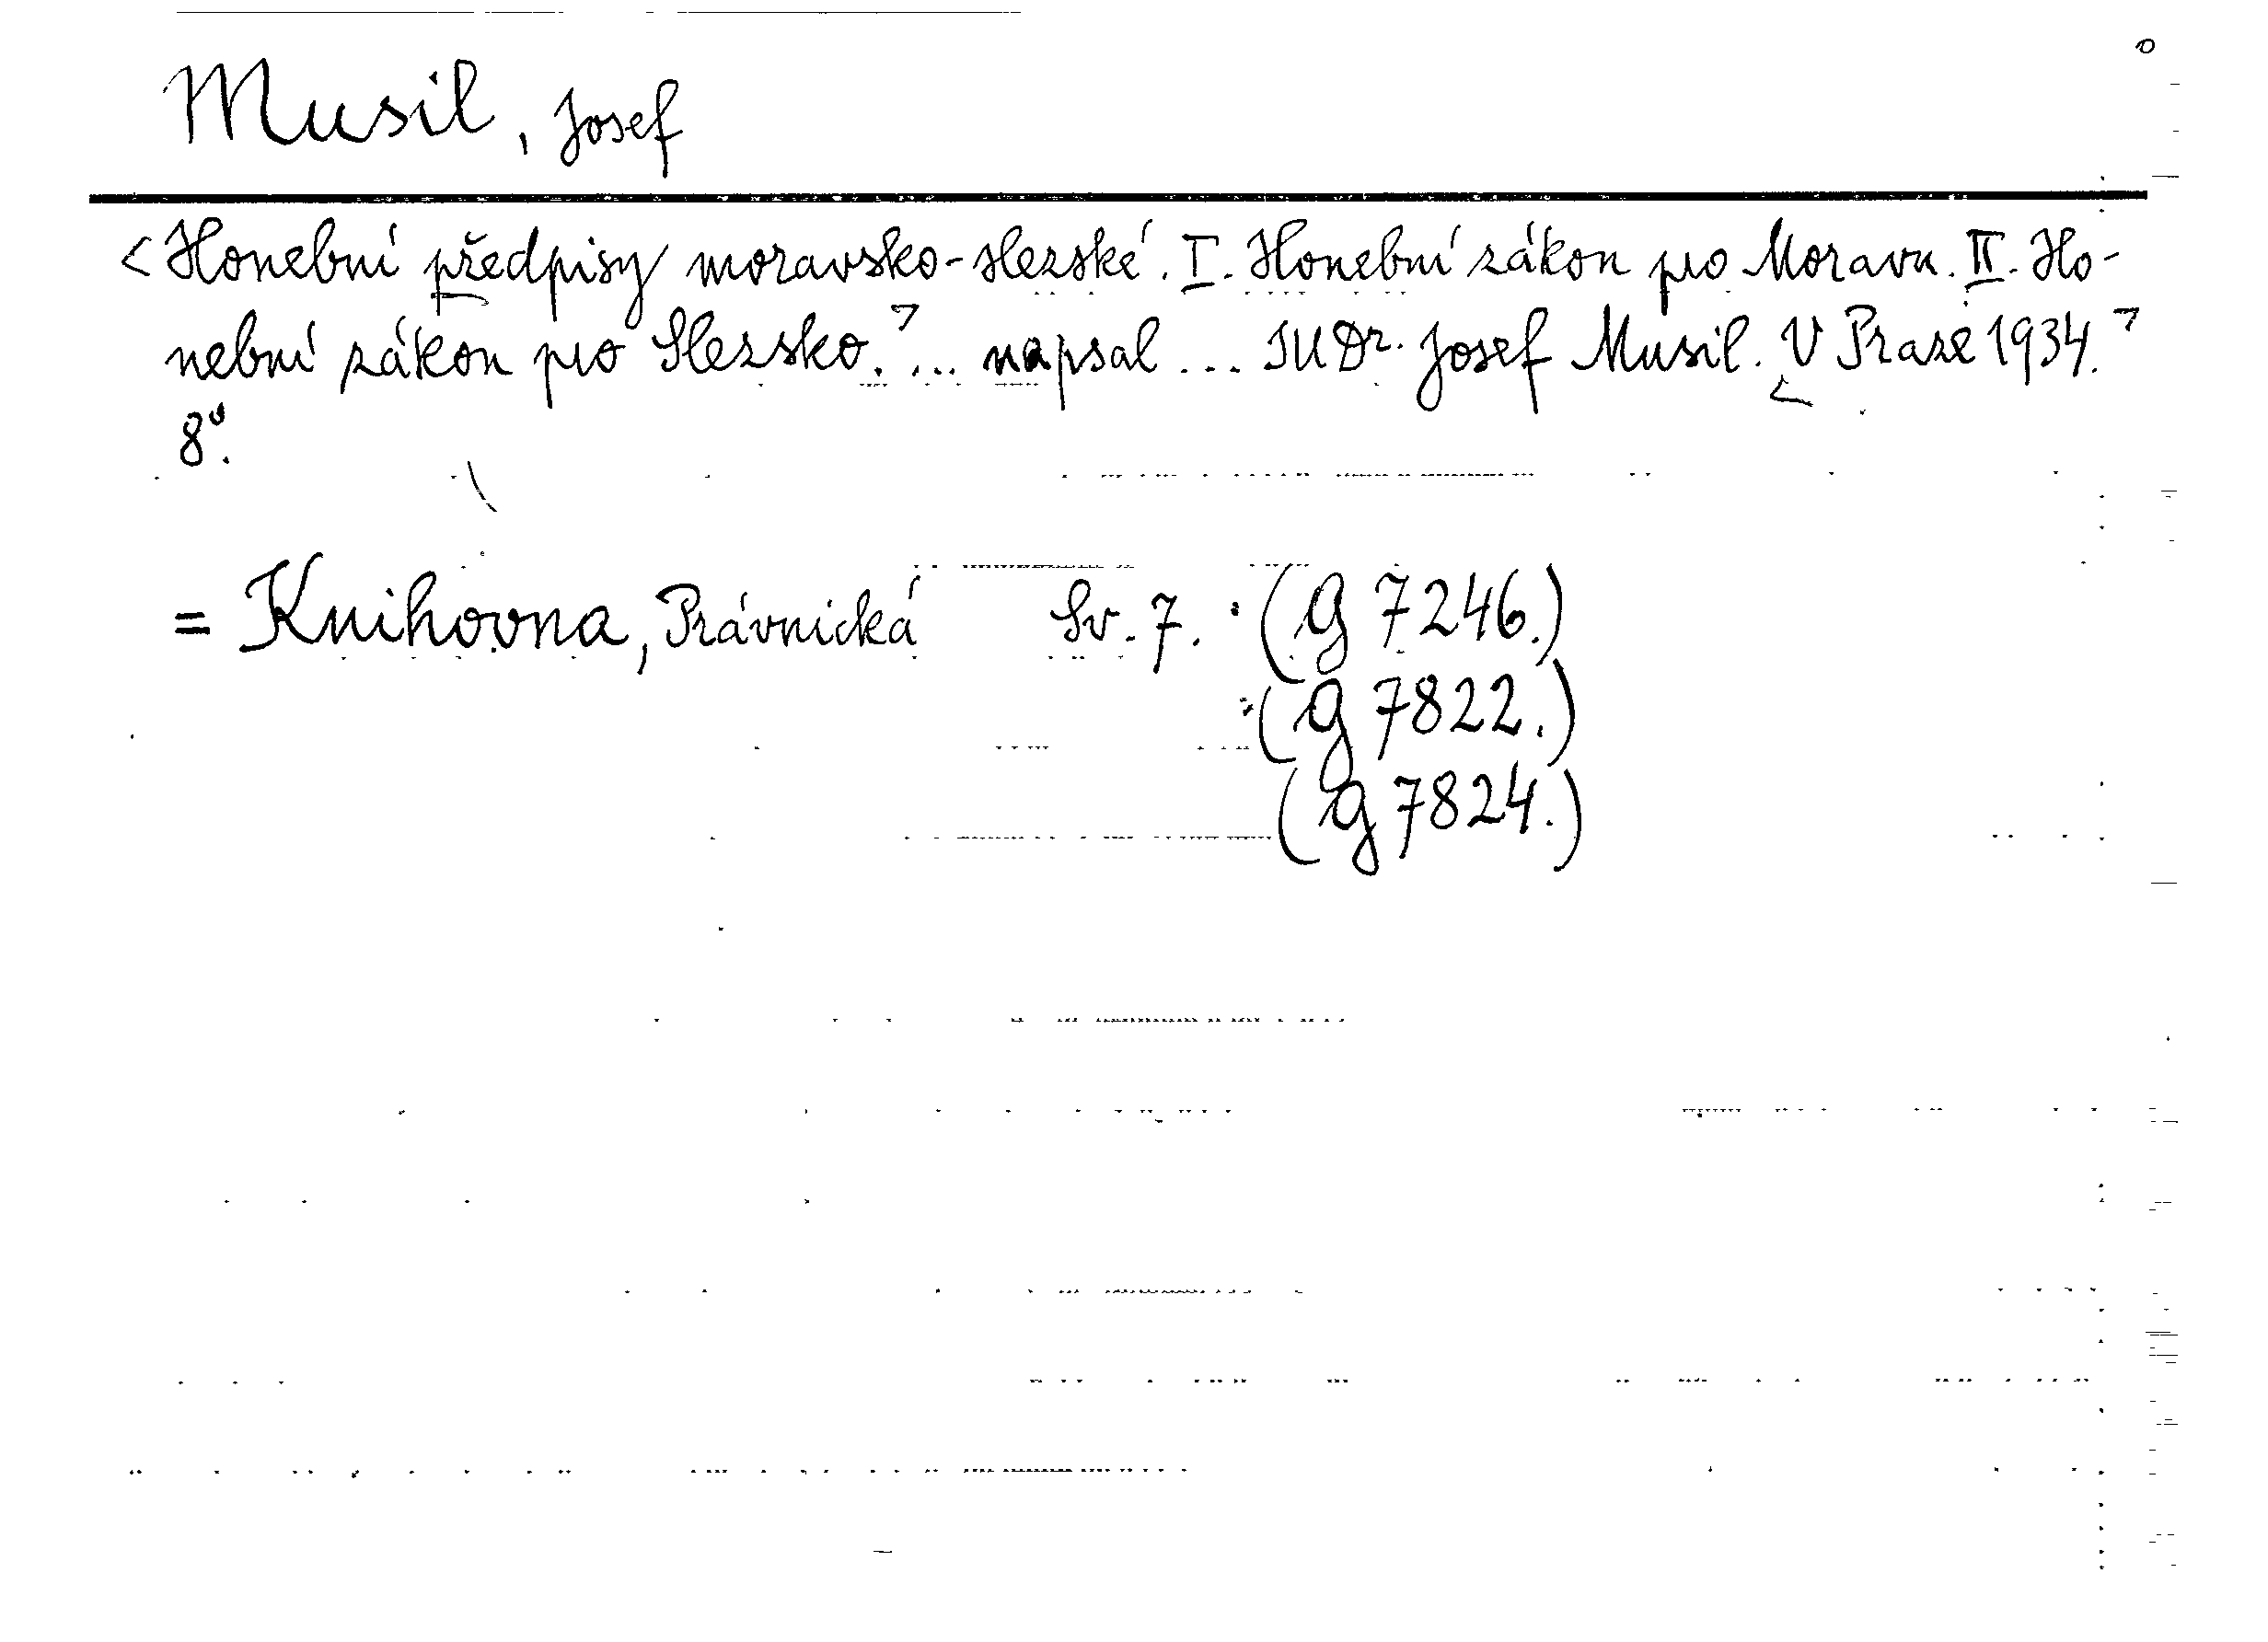 Musil, Josef
<Honební předpisy moravsko-slezské. I. Honební zákon pro Moravu. II. Ho-
nební zákon pro Slezsko.> ... napsal ... JUDr. Josef Musil. <V Praze 1934.>
8°.
= Knihovna, Právnická Sv. 7. (G 7246.)
(G 7822.)
(G 7824.)